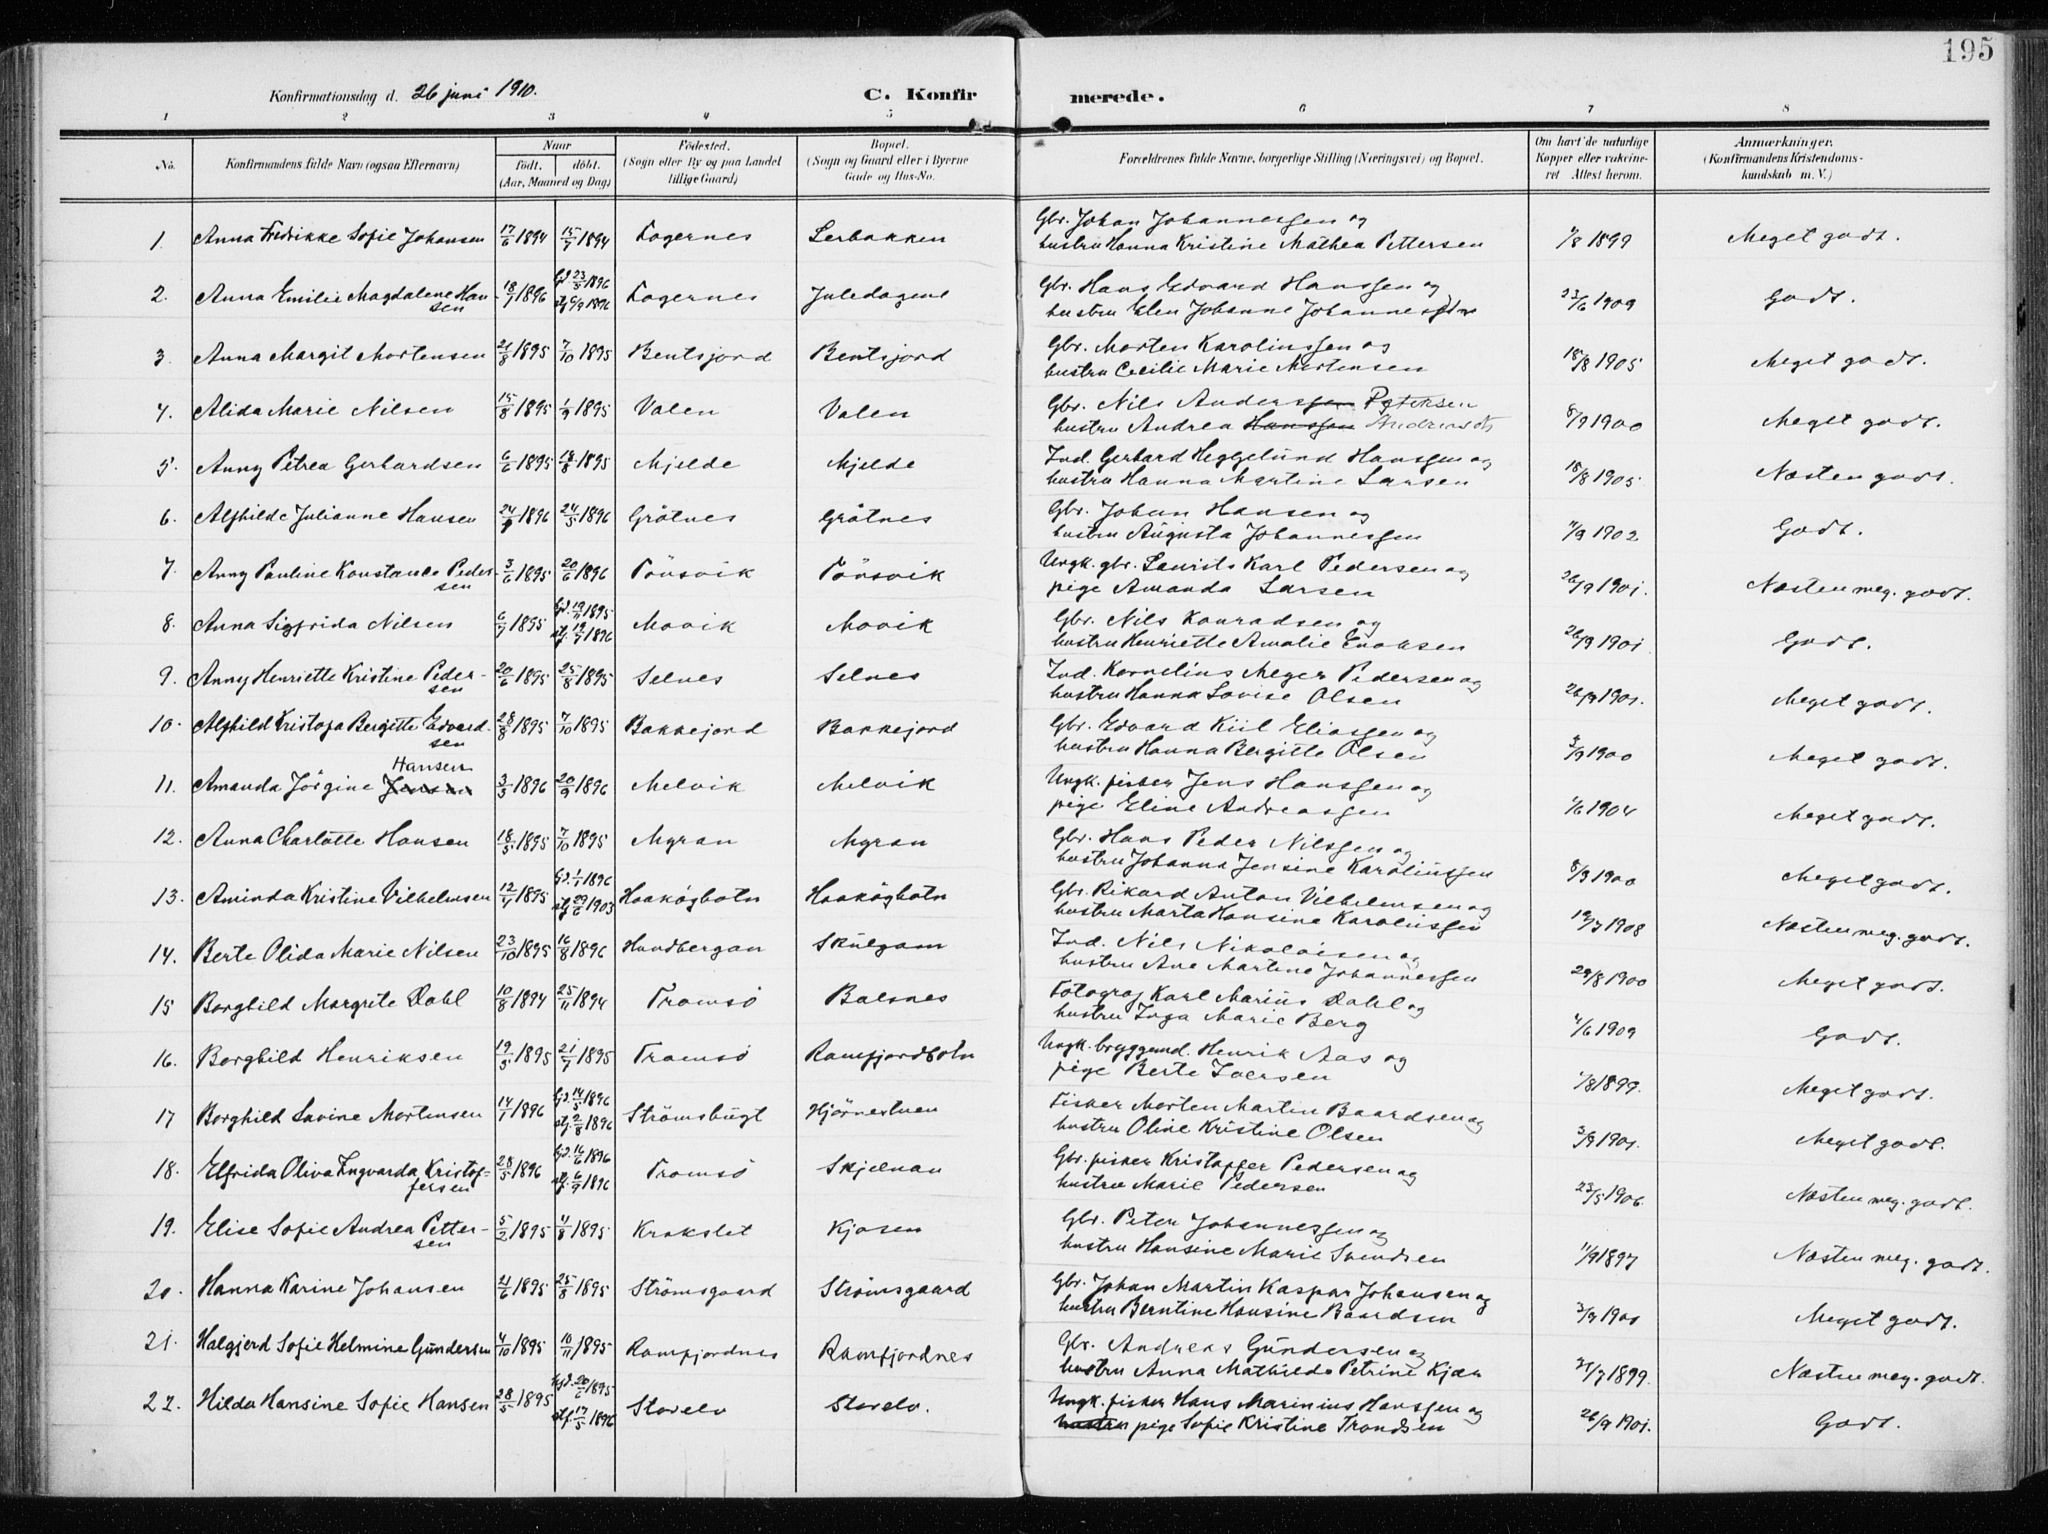 195
Konfirmationsdag d. 26 juni 1910. C. Konfirmerede.
1 2 3 4 5 6 7 8
No. Konfirmandens fulde Navn (ogsaa Efternavn) Naar født. døbt. (Aar, Maaned og Dag) Fødested. (Sogn eller By og paa Landet tillige Gaard) Bopæl. (Sogn og Gaard eller i Byerne Gade og Hus-No. Forældrenes fulde Navne, borgerlige Stilling (Næringsvei) og Bopæl. Om havt de naturlige Kopper eller vakcineret Attest herom. Anmærkninger. (Konfirmandens Kristendomskundskab m. V.)
1. Anna Fredrikke Sofie Johansen 17/6 1894 15/7 1894 Fagernes Lerbakken Gbr. Johan Johannessen og
hustru Hanna Kristine Mathea Pettersen 1/8 1899 Meget godt.
2. Anna Emilie Magdalene Hansen 18/1 1896 Gd. 23/5 1896 stf. 6/9 1896 Fagernes Juledagene Gbr. Hans Edvard Hanssen og
hustru Elen Johanne Johannes 23/6 1909 Godt.
3. Anna Margit Mortensen 21/8 1895 7/10 1895 Bentsjord Bentsjord Gbr. Morten Karolinssen og
hustru Cecilie Marie Mortensen 18/8 1905 Meget godt.
4. Alida Marie Nilsen 15/8 1895 1/9 1895 Valen Valen Gbr. Nils Anderssen Petersen
hustru Andrea Hanssen 8/9 1900 Meget godt.
5. Anny Petrea Gerhardsen 6/6 1895 18/8 1895 Mjelde Mjelde Ind. Gerhard Heggelund Hanssen og
hustru Hanna Martine Larsen 18/8 1905. Næsten godt.
6. Alfhilde Julianne Hansen 24/1 1896 24/5 1896 Grötnes Grötnes Gbr. Johan Hansen og
hustru Augusta Johannessen 4/9 1902 Godt.
7. Anny Pauline Konstance Pedersen 3/6 1895 20/6 1896 Tönsvik Tönsvik Ungk. gbr. Laurits Karl Pedersen og
pige Amanda Larsen 26/9 1901. Næsten meg. godt.
8. Anna Sigfrida Nilsen 6/7 1895 Gd. 19/11 1895 stf. 19/7 1896 Movik Movik Gbr. Nils Konradsen og
hustru Henriette Amalie Enoksen 26/9 1901 Godt.
9. Anny Henriette Kristine Pedersen 20/6 1895 25/8 1895 Selnes Selnes Ind. Kornelius Meyer Pedersen og
hustru Hanna Lovise Olsen 26/9 1901. Meget godt.
10. Alfhild Kristofa Bergitte Edvardsen 28/8 1895 7/10 1895 Bakkejord Bakkejord Gbr. Edvard Kiil Eliassen og
hustru Hanna Bergitte Olsen 3/9 1900 Meget godt.
11. Amanda Jörgine Jensen Hansen 3/5 1896 20/9 1896 Melvik Melvik Ungk. fisker Jens Hanssen og
pige Eline Andreassen 1/6 1904 Meget godt.
12. Anna Charlotte Hansen 18/5 1895 7/10 1895 Myran Myran Gbr. Hans Peder Nilssen og
hustru Johanna Jensine Karolinssen 8/9 1900 Meget godt.
13. Aminda Kristine Vilhelmsen 12/7 1895 Gd. 1/1 1896 stf. 29/6 1903 Haakögbotn Haakögbotn Gbr. Rikard Anton Vilhelmsen og
hustru Marta Hansine Karolinssen 19/7 1908 Næsten meg. godt.
14. Berte Olida Marie Nilsen 23/10 1895 16/8 1896 Hundbergan Skulgam Ind. Nils Nikolaisen og
hustru Ane Martine Johannessen 29/8 1900 Meget godt.
15 Borghild Margrete Dahl 10/8 1894 25/11 1894 Tromsö Balsnes Fotograf Karl Marius Dahl og
hustru Inga Marie Berg 4/6 1909 Godt.
16. Borghild Henriksen 19/5 1895 21/7 1895 Tromsö Ramfjordbotn Ungk. bryggend. Henrik Aas og
pige Berte Iversen 1/8 1899. Meget godt.
17 Borghild Lavine Mortensen 14/1 1896 Gd. 14/5 1896 stf. 2/8 1896 Strömsbugt Hjörnestuen Fisker Morten Martin Baardsen og
hustru Oline Kristine Olsen 3/9 1901. Meget godt.
18. Elfrida Oliva Ingvarda Kristoffersen 28/5 1896 Gd. 16/6 1896 stf. 6/9 1896 Tromsö Skjelnan Gbr. fisker Kristoffer Pedersen og
hustru Marie Pedersen 23/5 1906. Næsten meg. godt.
19. Elise Sofie Andrea Pettersen 5/2 1895 4/8 1895 Krokslet Kjosen Gbr. Peter Johannessen og
hustru Hansine Marie Svendsen 11/9 1897 Næsten meg. godt.
20. Hanna Karine Johansen 21/6 1895 25/8 1895 Strömsgaard Strömsgaard Gbr. Johan Martin Kaspar Johansen og
hustru Berntine Hansine Baardsen 3/9 1901 Meget godt.
21. Halgjerd Sofie Helmine Gundersen 4/10 1895 10/11 1895 Ramfjordnes Ramfjordnes Gbr. Andreas Gundersen og
hustru Anna Mathilde Petrine Kjær 21/7 1899. Næsten meg. godt.
22. Hilda Hansine Sofie Hansen 28/5 1895 Gd. 20/6 1895 stf. 17/5 1896 Storelv Storelv. Ungk. fisker Hans Marinius Hanssen og
hustru pige Sofie Kristine Trondsen 26/9 1901. Godt.